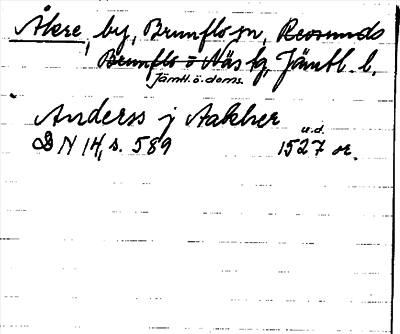 Åkre, by, Brunflo sn, Revsunds
Brunflo o Näs tg, Jämtl. l.
Jämtl. ö. doms.
Anderss j Aakher
DN 14, s. 589 u.d. 1527 or.